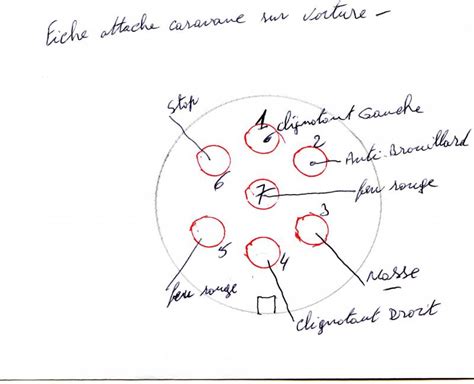 Fiche attache caravane sur voiture -
Stop
1 clignotant Gauche
2
Anti-Brouillard
6
7
feu rouge
3
5
4
feu rouge
Masse
clignotant Droit